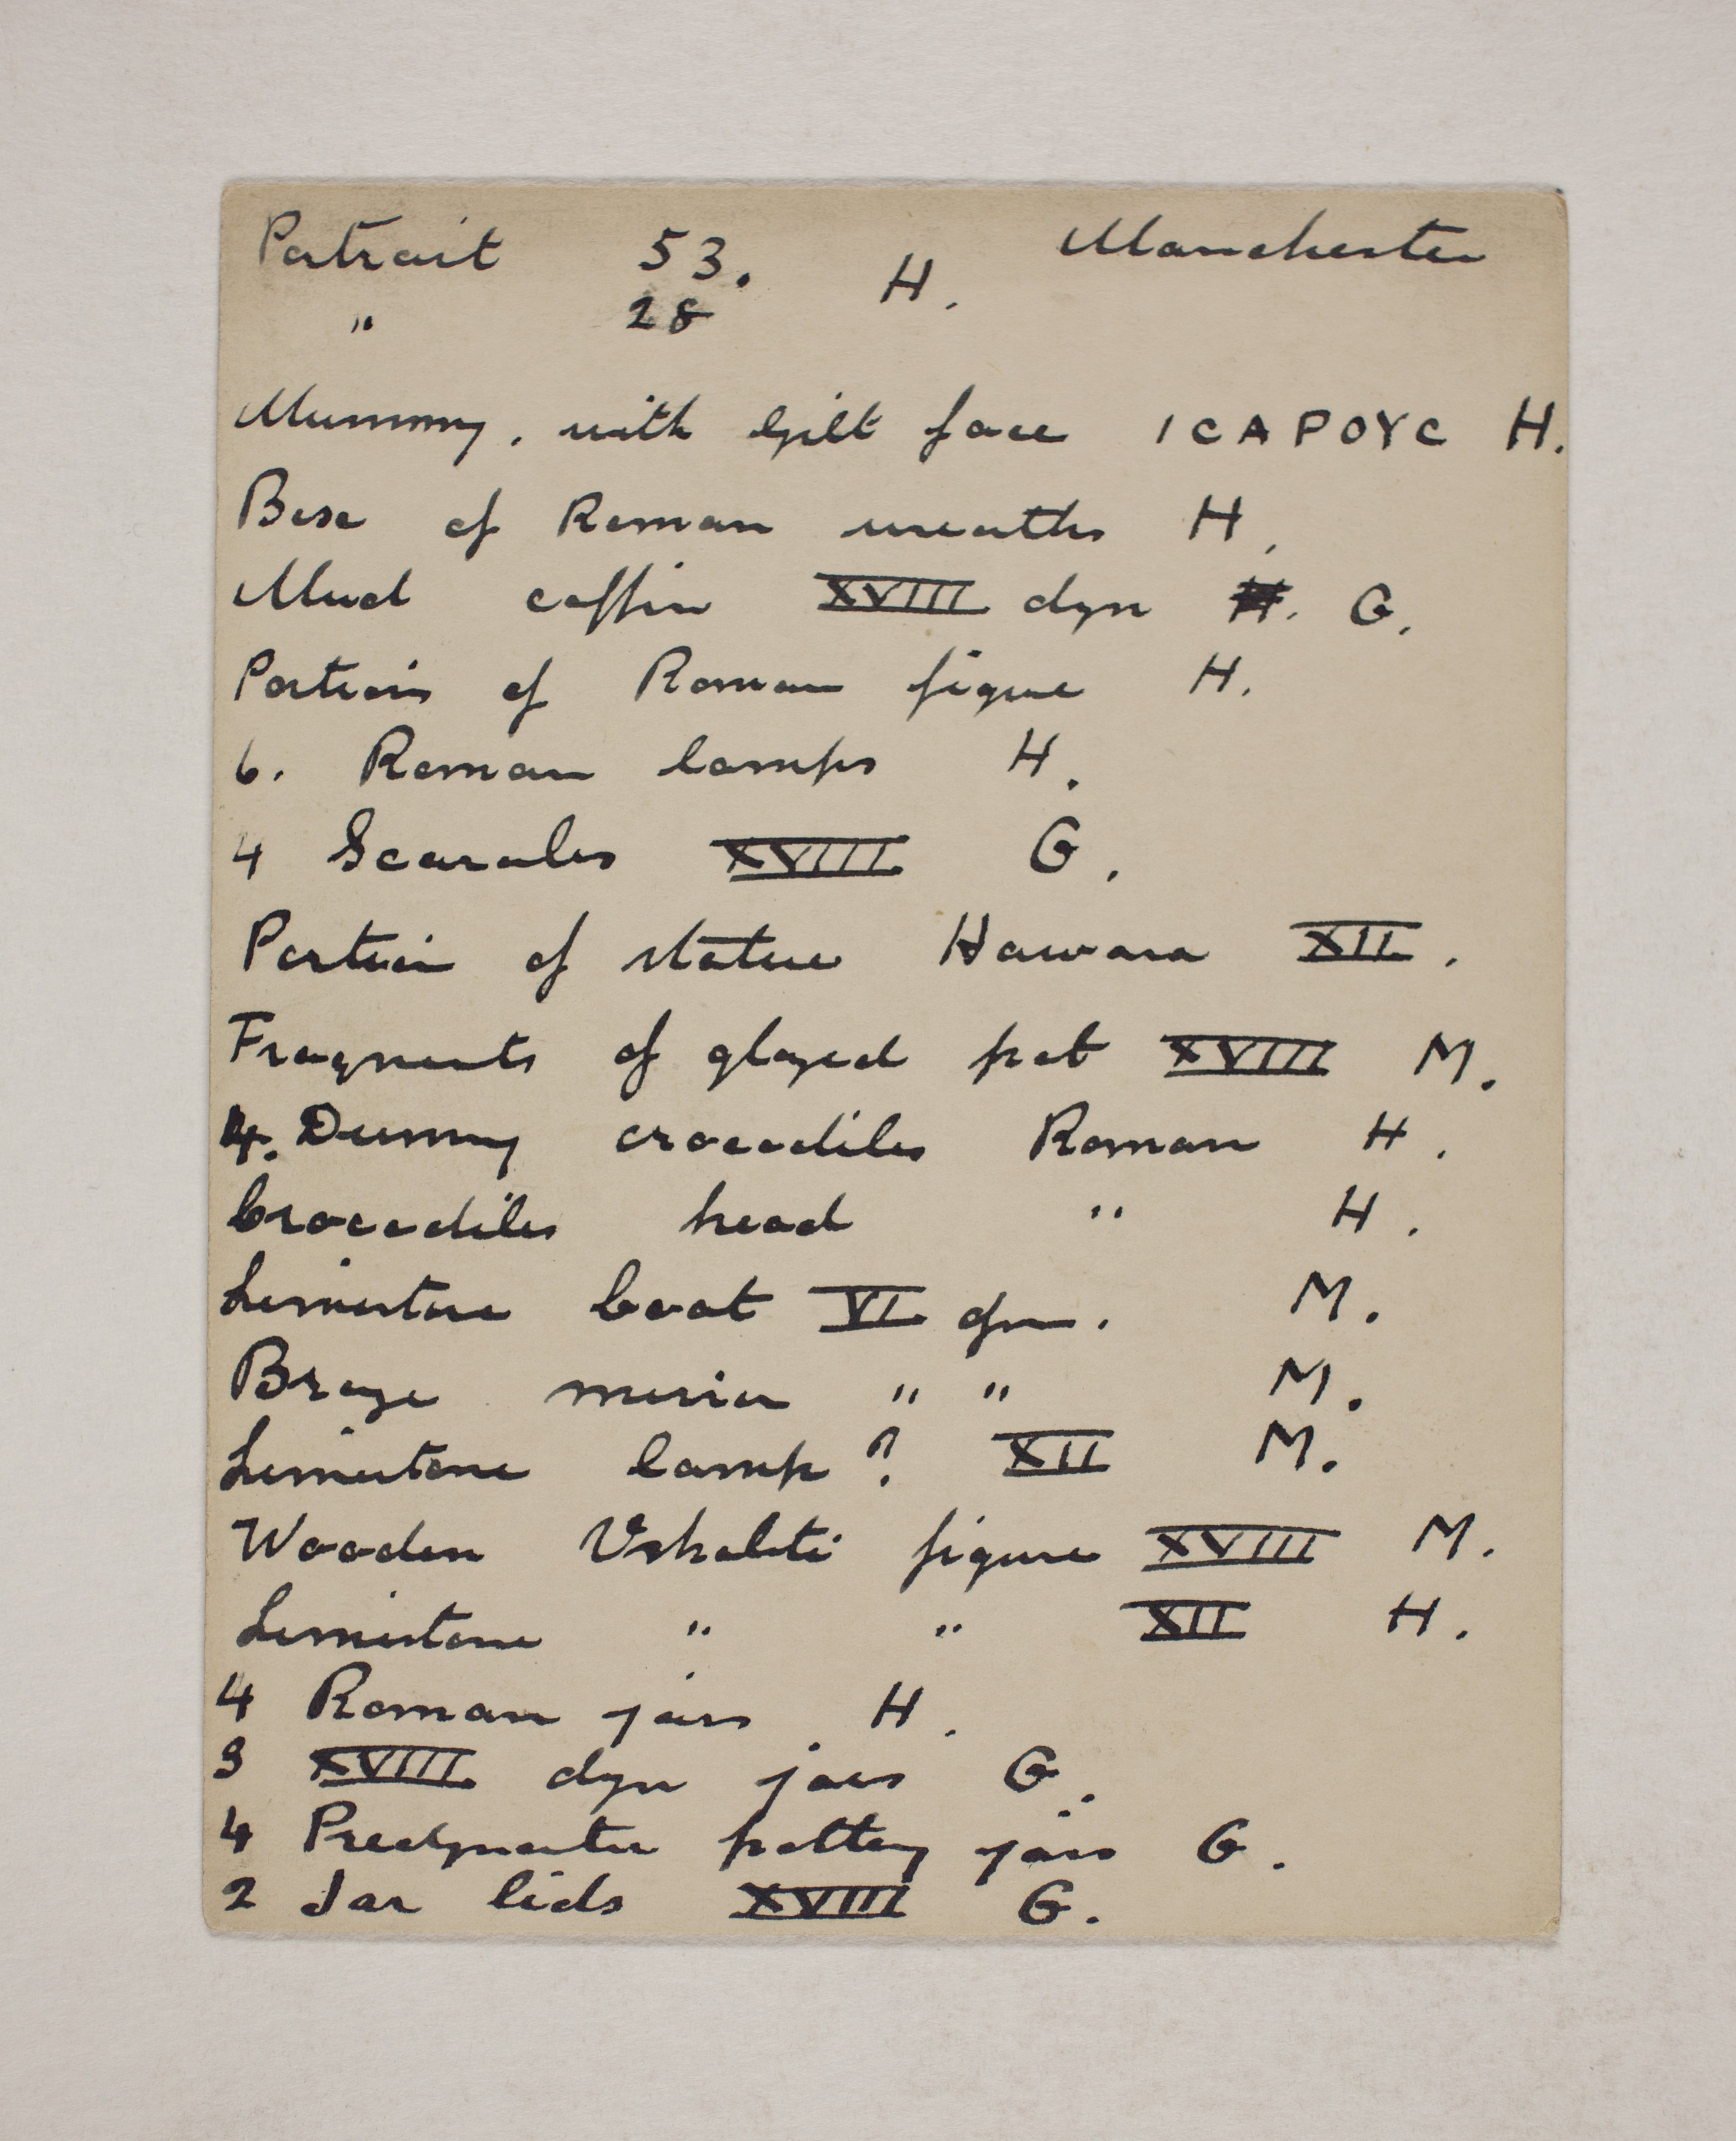 Portrait 53. H. Manchester
" 28
Mummy, with gilt face ICAPOYC H.
Box of Roman wreaths H.
Mud coffin XVIII dyn H. G.
Portion of Roman figure H.
6. Roman lamps H.
4 Scarabs XVIII G.
Portion of statue Hawara XII.
Fragments of glazed pot XVIII M.
4. Dummy crocodiles Roman H.
Crocodiles head " H.
Limestone boat VI dyn. M.
Bronze mirror " " M.
Limestone lamp? XII M.
Wooden Ushabti figure XVIII M.
Limestone " " XII H.
4 Roman jars H.
3 XVIII dyn jars G.
4 Predynastic pottery jars G.
2 Jar lids XVIII G.